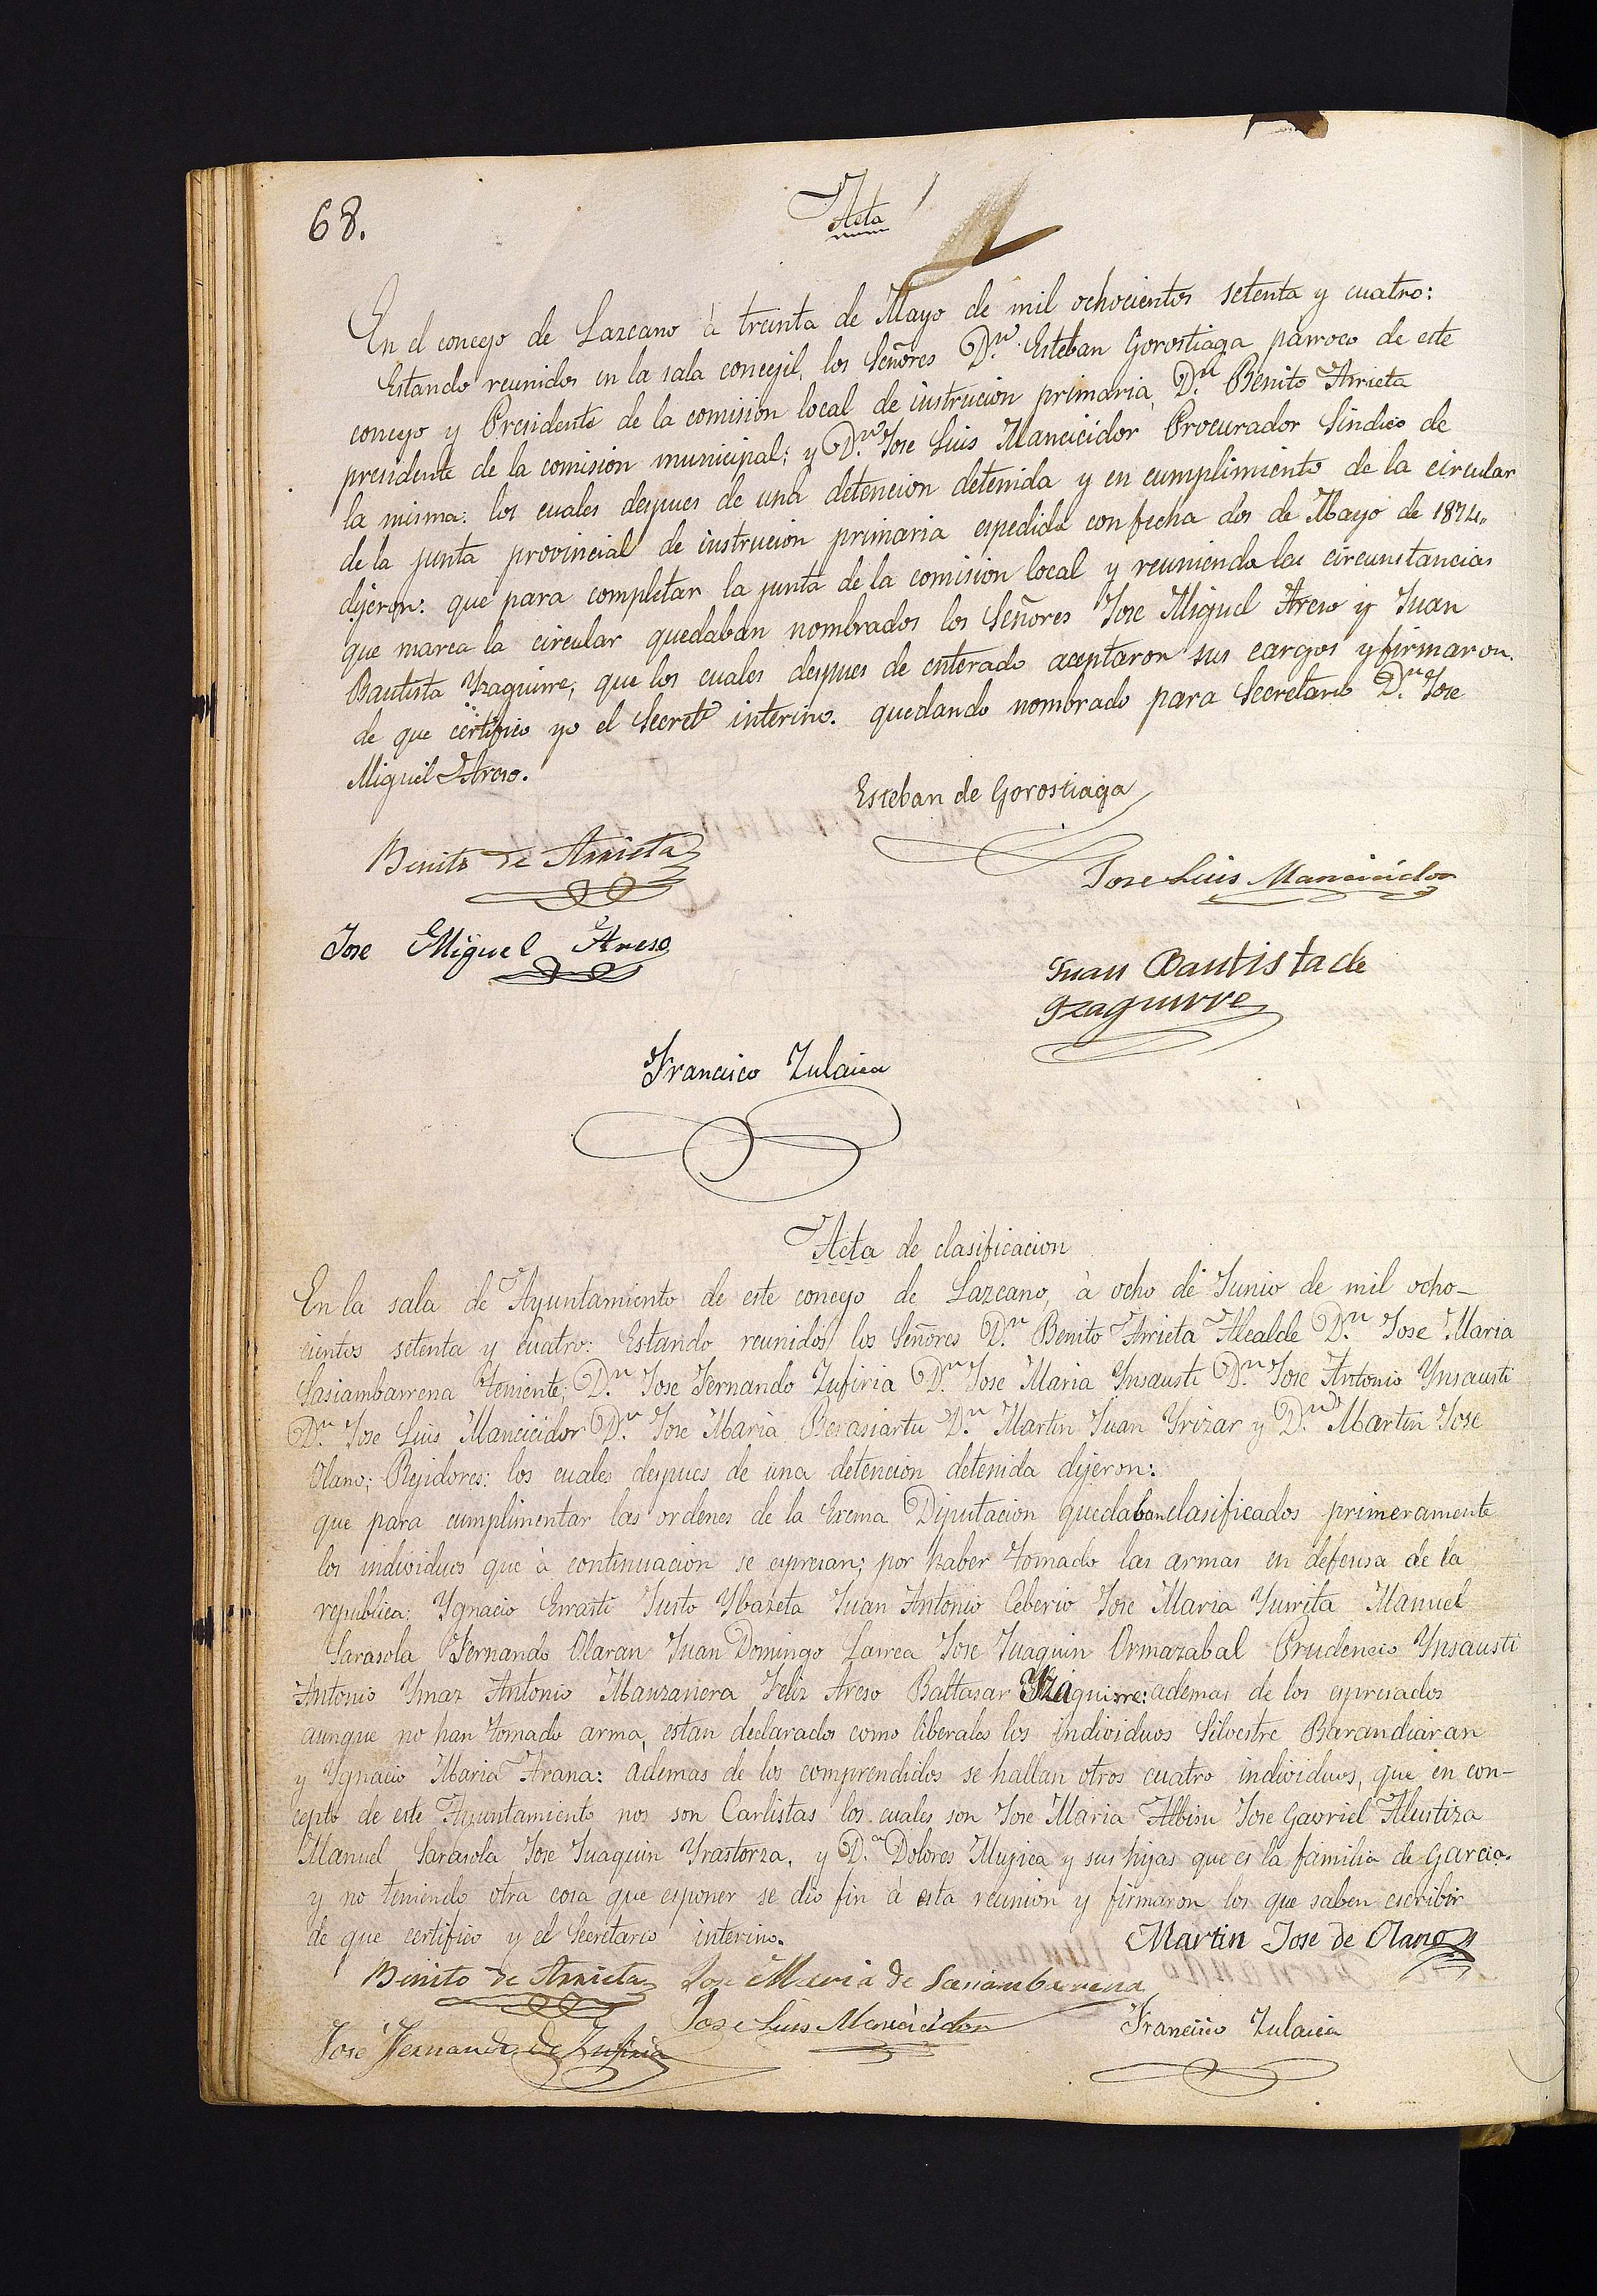 68.
Acta
En el concejo de Lazcano à treinta de Mayo de mil ochocientos setenta y cuatro:
Estando reunidos en la sala concejil, los Señores Dⁿ. Esteban Gorostiaga párroco de este
concejo y Presidente de la comision local de instrucion primaria, Dⁿ. Benito Arrieta
presidente de la comision municipal; y Dⁿ. Jose Luis Mancicidor Procurador Sindico de
la misma: los cuales despues de una detencion detenida y en cumplimiento de la circular
de la junta provincial de instrucion primaria espedida con fecha dos de Mayo de 1874,,
dijeron: que para completar la junta de la comision local y reuniendo las circunstancias
que marca la circular quedaban nombrados los Señores Jose Miguel Areso y Juan
Bautista Yzaguirre, que los cuales despues de enterado aceptaron sus cargos y firmaron.
de que certifico yo el Secretº interino. quedando nombrado para Secretario Dⁿ. Jose
Miguel Areso.
Esteban de Gorostiaga
Benito de Arrieta
Jose Luis Mancicidor
Jose Miguel Areso
Juan Bautista de
Yzaguirre
Francisco Zulaica
Acta de clasificacion
En la sala de Ayuntamiento de este concejo de Lazcano, à ocho de Junio de mil ocho-
cientos setenta y cuatro: Estando reunidos los Señores Dⁿ. Benito Arrieta Alcalde Dⁿ. Jose Maria
Sasiambarrena teniente; Dⁿ. Jose Fernando Zufiria Dⁿ. Jose Maria Ynsausti Dⁿ. Jose Antonio Ynsausti
Dⁿ. Jose Luis Mancicidor Dⁿ. Jose Maria Berasiartu Dⁿ. Martin Juan Yrizar y Dⁿ. Martin Jose
Olano; Rejidores: los cuales despues de una detencion detenida dijeron:
que para cumplimentar las ordenes de la Exema Diputacion quedaban clasificados primeramente
los individuos que à continuacion se espresan; por haber tomado las armas en defensa de la
republica: Ygnacio Errasti Justo Ybazeta Juan Antonio Ceberio Jose Maria Yurrita Manuel
Sarasola Fernando Olaran Juan Domingo Larrea Jose Juaquin Ormazabal Prudencio Ynsausti
Antonio Ymaz Antonio Manzanera Feliz Areso Baltasar Yzaguirre: ademas de los espresados
aunque no han tomado arma, estan declarados como liberales los individuos Silvestre Barandiaran
y Ygnacio Maria Arana: ademas de los comprendidos se hallan otros cuatro individuos, que en con-
cepto de este Ayuntamiento nos son Carlistas los cuales son Jose Maria Albisu Jose Gavriel Alustiza
Manuel Sarasola Jose Juaquin Yrastorza, y Dª. Dolores Mujica y sus hijas que es la familia de Garcia.
y no teniendo otra cosa que esponer se dio fin à esta reunion y firmaron los que saben escribir
de que certifico y el Secretario interino.
Martin Jose de Olano
Benito de Arrieta Jose Maria de Sasiambarrena
Jose Luis Mancicidor
Francisco Zulaica
José Fernando de Zufiria